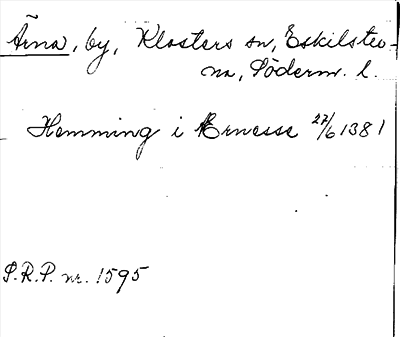 Ärna, by, Klosters sn, Eskilstu-
na, Söderm. l.
Hemming i Ærnesse 27/6 1381
S.R.P. nr. 1595